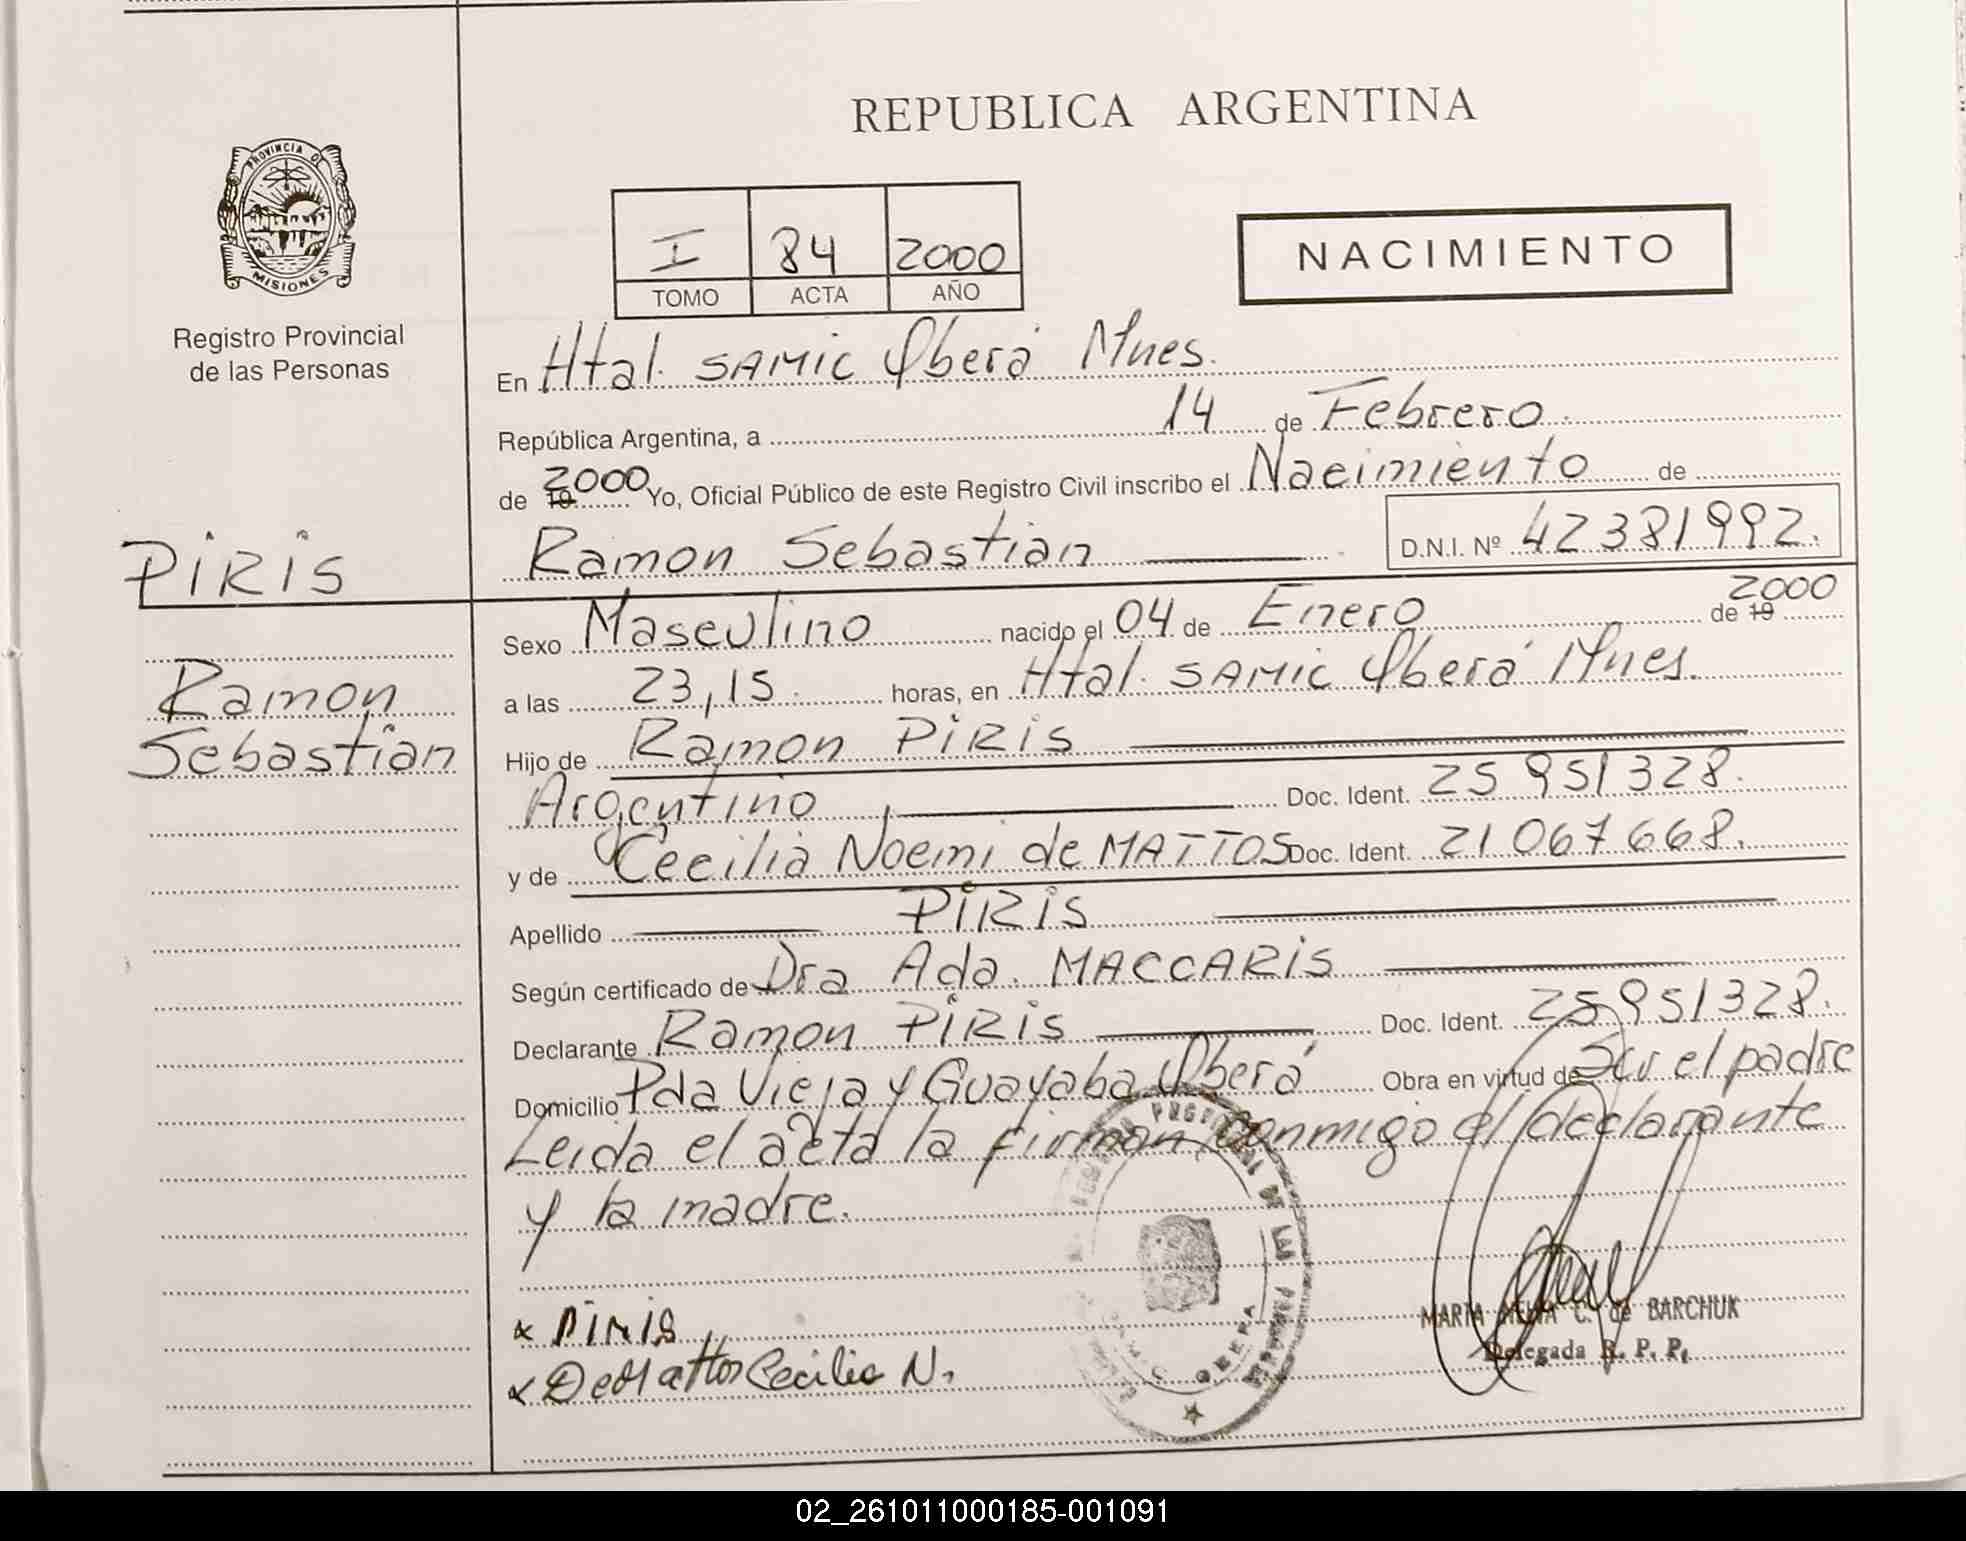 REPUBLICA ARGENTINA
PROVINCIA DE
MISIONES
Registro Provincial
de las Personas
I 84 2000
TOMO ACTA AÑO
NACIMIENTO
En Htal. SAMIC Oberá Mnes.
República Argentina, a 14 de Febrero
de 19 2000 Yo, Oficial Público de este Registro Civil inscribo el Nacimiento de
PIRIS
Ramon Sebastian D.N.I. Nº 42381992.
Sexo Masculino nacido el 04 de Enero de 19 2000
Ramon
Sebastian
a las 23,15. horas, en Htal. SAMIC Oberá Mnes.
Hijo de Ramon PIRIS
Argentino Doc. Ident. 25951328.
y de Cecilia Noemi de MATTOS Doc. Ident. 21067668.
Apellido PIRIS
Según certificado de Dra Ada. MACCARIS
Declarante Ramon PIRIS Doc. Ident. 25951328.
Domicilio Pda Vieja y Guayaba Oberá Obra en virtud de Ser el padre
Leida el acta la firman conmigo el declarante
y la madre.
x PIRIS
x De Mattos Cecilia N.
DE LAS
OBERA
MARIA C. de BARCHUK
Delegada R. P. P.
02_261011000185-001091